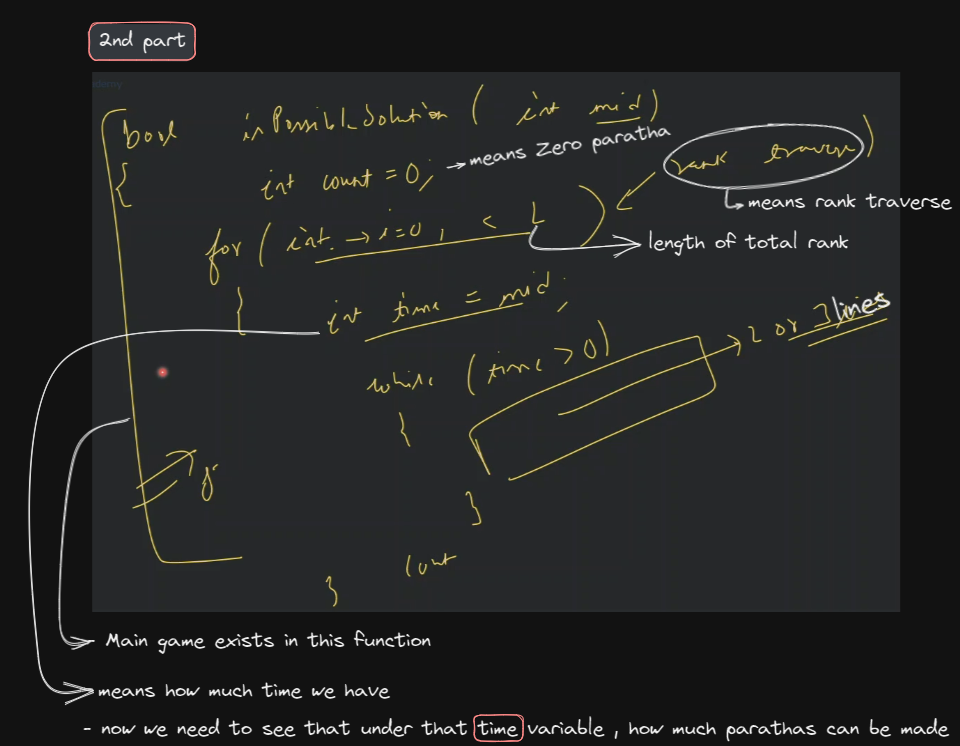 2nd part
bool isPossibleSolution ( int mid )
{
int count = 0; → means Zero paratha
rank traverse )
↳ means rank traverse
for ( int → i=0 , < L )
→ length of total rank
{ int time = mid;
while (time > 0) → 2 or 3 lines
{
}
}
Main game exists in this function
means how much time we have
- now we need to see that under that time variable , how much parathas can be made